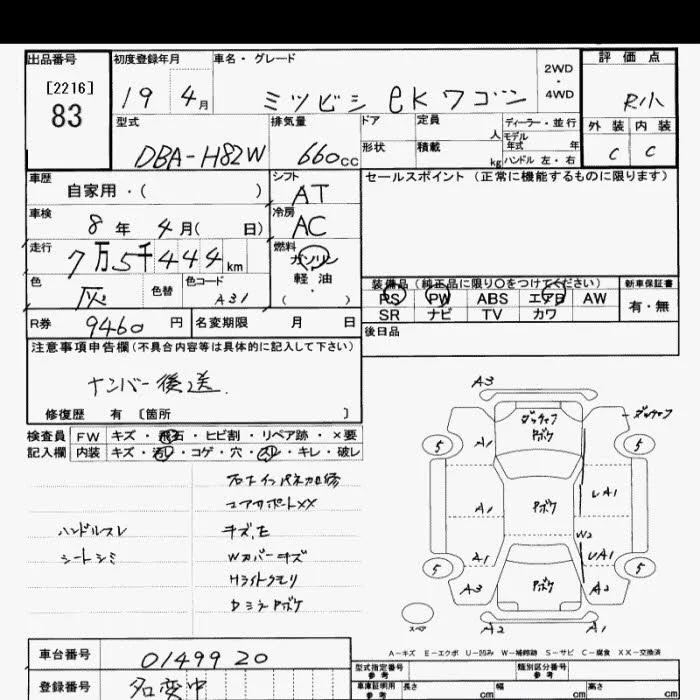 出品番号 初度登録年月 車名・グレード 2WD・4WD 評価点
[2216]
83
19 4月 ミツビシ ekワゴン R小
型式 排気量 ドア 定員 人 ディーラー・並行 外装 内装
DBA-H82W 660cc 形状 積載 kg モデル年式 年 ハンドル 左・右 C C
車歴 自家用・( ) シフト AT セールスポイント(正常に機能するものに限ります)
車検 8年 4月( 日) 冷房 AC
走行 7万5千444km 燃料 ガソリン
軽油
( ・ )
色 灰 色替 色コード A31
装備品(純正品に限り○をつけてください) 新車保証書
PS PW ABS エアB AW 有・無
SR ナビ TV カワ
R券 9460円 名変期限 月 日 後日品
注意事項申告欄(不具合内容等は具体的に記入して下さい)
ナンバー後送.
修復歴 有 〔箇所 〕
検査員 FW キズ・飛石・ヒビ割・リペア跡・×要
記入欄 内装 キズ・汚レ・コゲ・穴・スレ・キレ・破レ
コアサポートXX
ハンドルスレ キズ,E
シートシミ Wカバーキズ
Hライトクモリ
DミラーPボケ
A3
A1 Pボケ
5 5
A1 Pボケ UA1
W2
A1 UA1
5 5
A3 Pボケ A2
スペア A2 A1
A−キズ E−エクボ U−凹み W−補修跡 S−サビ C−腐食 XX−交換済
車台番号 0149920
登録番号 名変中
型式指定番号 参考 類別区分番号 参考
車庫証明用 参考 長さ cm 幅 cm 高さ cm